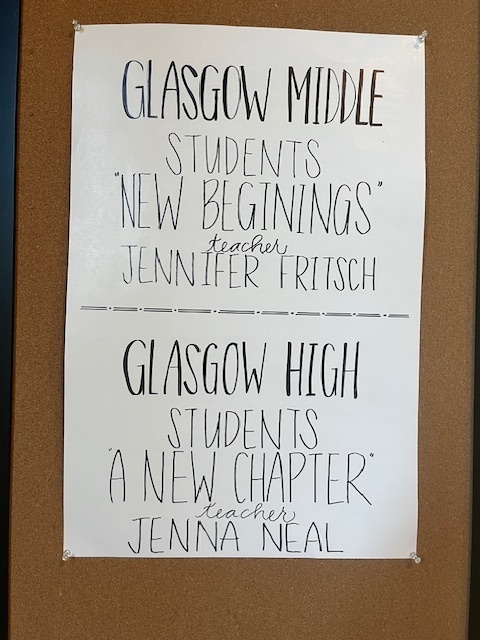 GLASGOW MIDDLE
STUDENTS
"NEW BEGININGS"
teacher
JENNIFER FRITSCH
GLASGOW HIGH
STUDENTS
"A NEW CHAPTER"
teacher
JENNA NEAL